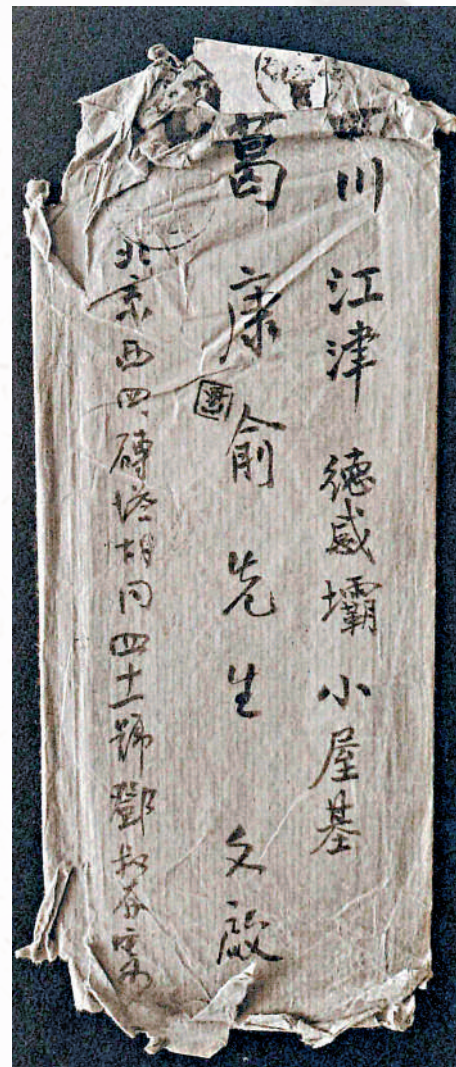 四川 江津 德感壩 小屋基
葛康俞先生 文啟
北京西四磚塔胡同四十一號鄧叔存寄